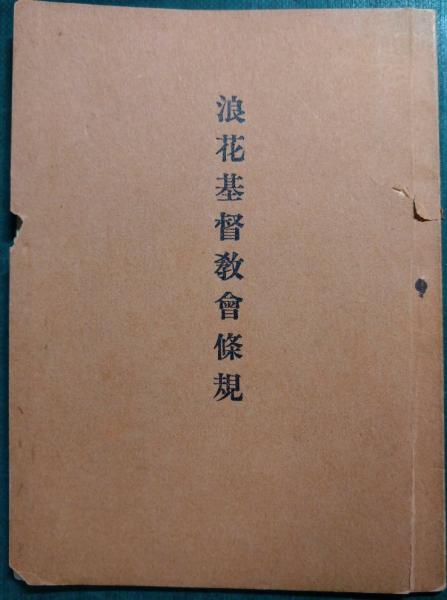 浪花基督敎會條規